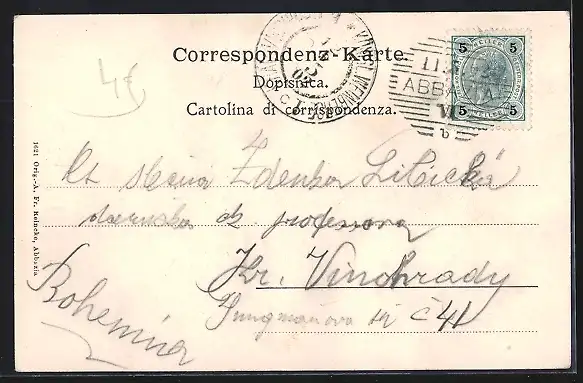 4€
Correspondenz-Karte.
Dopisnica.
Cartolina di corrispondenza.
5 5
5 5
HELLER
11
ABB
VI
b
1021 Orig.-A. Fr. Reinecke, Abbazia
slečna Zdenka Libická
dcerunka c.k. professora
Kr. Vinohrady
Jungmanova tř. č 41
Bohemia